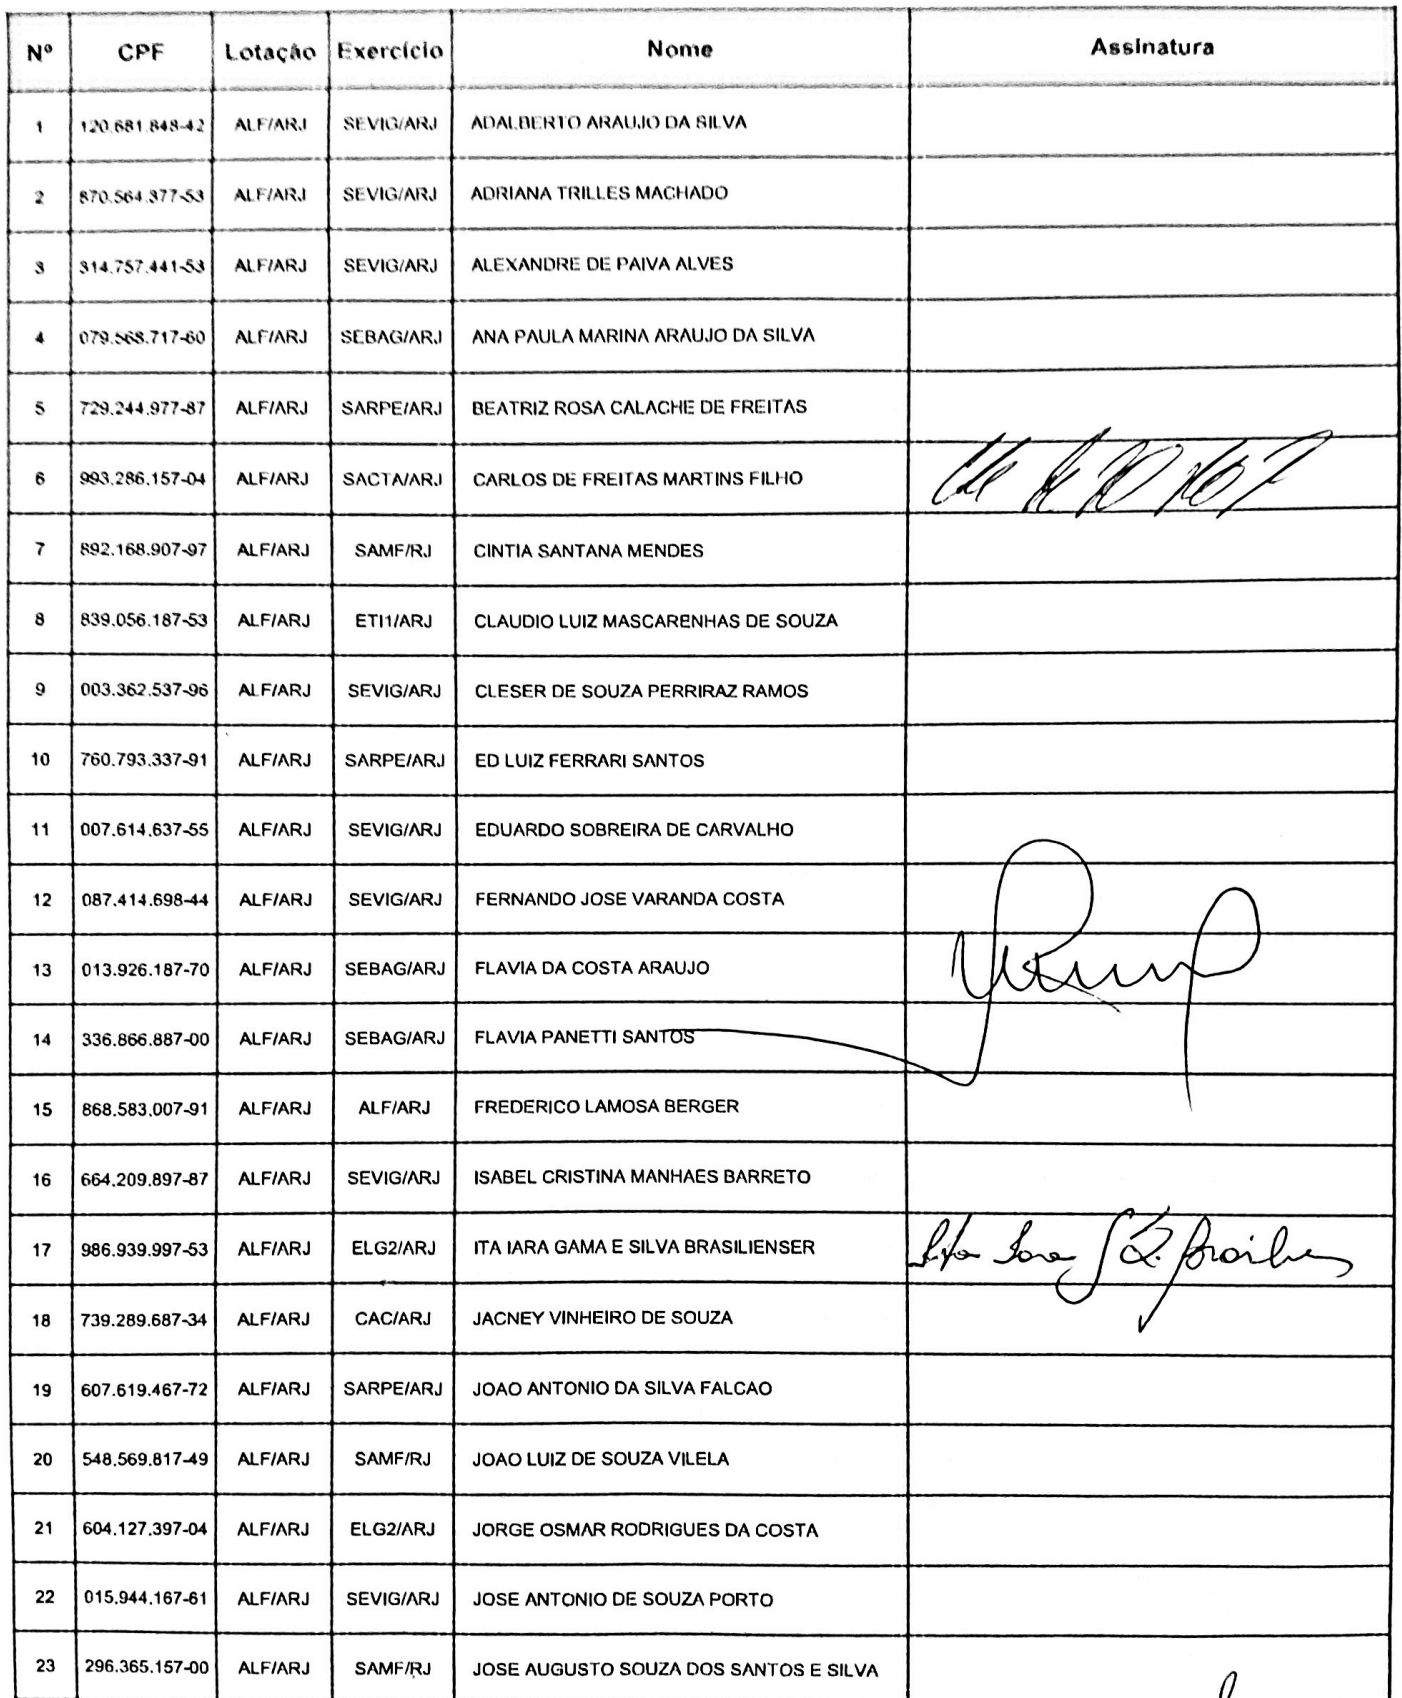 Nº CPF Lotação Exercício Nome Assinatura
1 120.681.848-42 ALF/ARJ SEVIG/ARJ ADALBERTO ARAUJO DA SILVA
2 870.564.377-53 ALF/ARJ SEVIG/ARJ ADRIANA TRILLES MACHADO
3 314.757.441-53 ALF/ARJ SEVIG/ARJ ALEXANDRE DE PAIVA ALVES
4 079.568.717-60 ALF/ARJ SEBAG/ARJ ANA PAULA MARINA ARAUJO DA SILVA
5 729.244.977-87 ALF/ARJ SARPE/ARJ BEATRIZ ROSA CALACHE DE FREITAS
6 993.286.157-04 ALF/ARJ SACTA/ARJ CARLOS DE FREITAS MARTINS FILHO
7 892.168.907-97 ALF/ARJ SAMF/RJ CINTIA SANTANA MENDES
8 839.056.187-53 ALF/ARJ ETI1/ARJ CLAUDIO LUIZ MASCARENHAS DE SOUZA
9 003.362.537-96 ALF/ARJ SEVIG/ARJ CLESER DE SOUZA PERRIRAZ RAMOS
10 760.793.337-91 ALF/ARJ SARPE/ARJ ED LUIZ FERRARI SANTOS
11 007.614.637-55 ALF/ARJ SEVIG/ARJ EDUARDO SOBREIRA DE CARVALHO
12 087.414.698-44 ALF/ARJ SEVIG/ARJ FERNANDO JOSE VARANDA COSTA
13 013.926.187-70 ALF/ARJ SEBAG/ARJ FLAVIA DA COSTA ARAUJO
14 336.866.887-00 ALF/ARJ SEBAG/ARJ FLAVIA PANETTI SANTOS
15 868.583.007-91 ALF/ARJ ALF/ARJ FREDERICO LAMOSA BERGER
16 664.209.897-87 ALF/ARJ SEVIG/ARJ ISABEL CRISTINA MANHAES BARRETO
17 986.939.997-53 ALF/ARJ ELG2/ARJ ITA IARA GAMA E SILVA BRASILIENSER
18 739.289.687-34 ALF/ARJ CAC/ARJ JACNEY VINHEIRO DE SOUZA
19 607.619.467-72 ALF/ARJ SARPE/ARJ JOAO ANTONIO DA SILVA FALCAO
20 548.569.817-49 ALF/ARJ SAMF/RJ JOAO LUIZ DE SOUZA VILELA
21 604.127.397-04 ALF/ARJ ELG2/ARJ JORGE OSMAR RODRIGUES DA COSTA
22 015.944.167-61 ALF/ARJ SEVIG/ARJ JOSE ANTONIO DE SOUZA PORTO
23 296.365.157-00 ALF/ARJ SAMF/RJ JOSE AUGUSTO SOUZA DOS SANTOS E SILVA